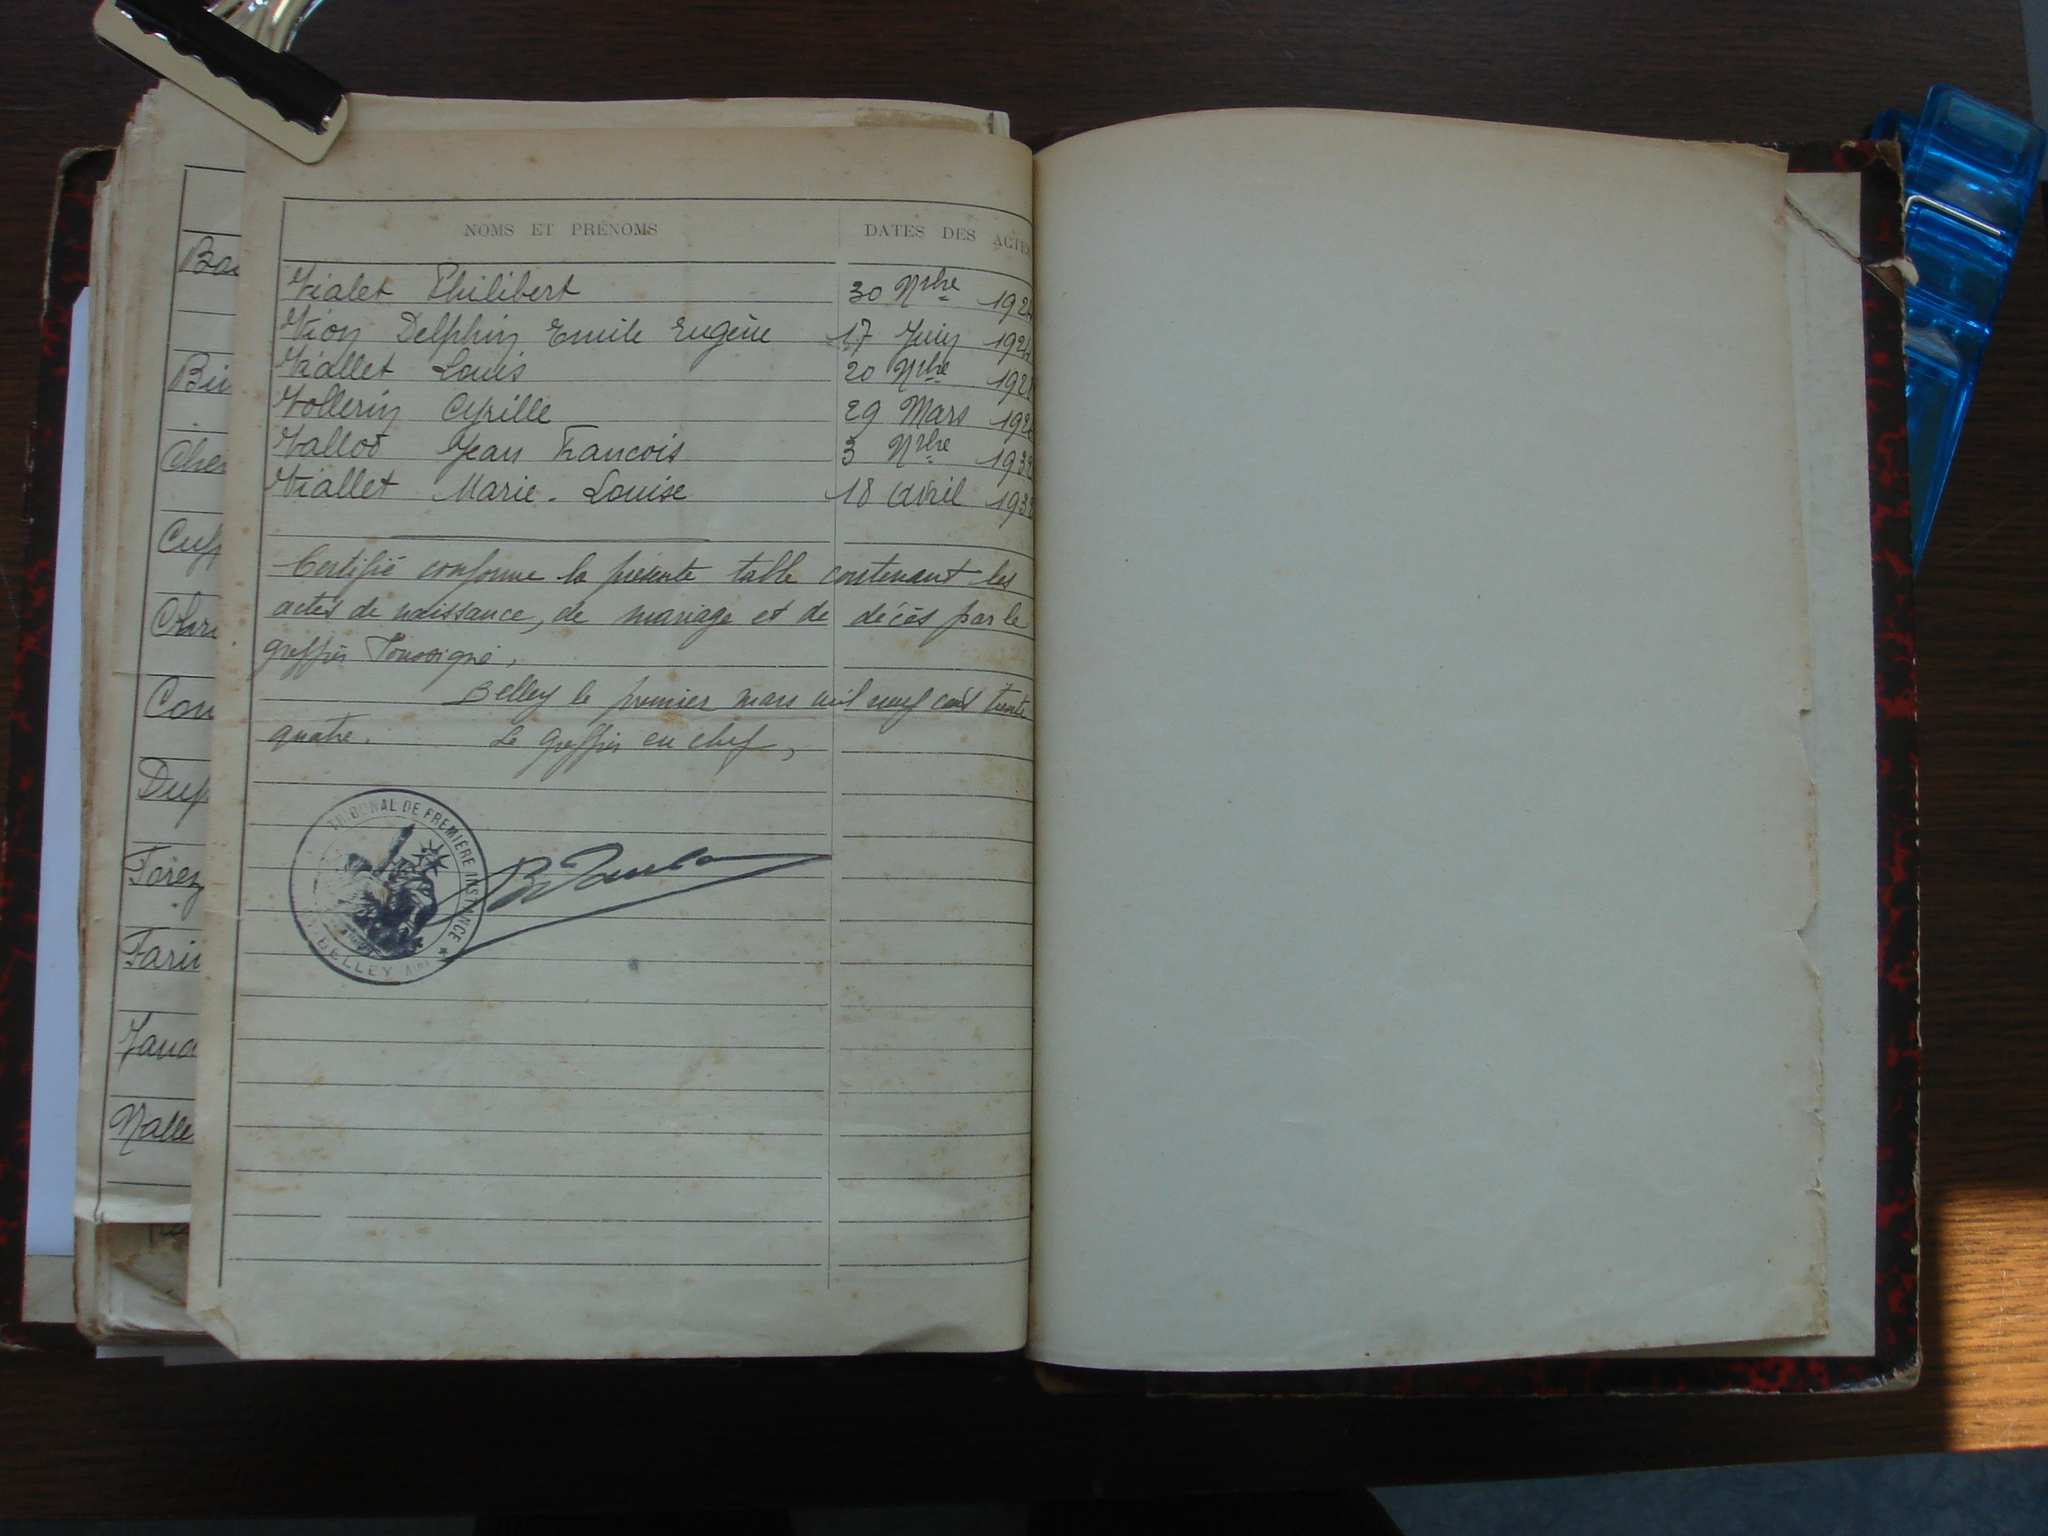 NOMS ET PRÉNOMS DATES DES ACTES
Vialet Philibert 30 Nbre 192
Vion Delphin Emile Eugène 17 Juin 192
Viallet Louis 20 Nbre 192
Vollerin Cyrille 29 Mars 192
Vallod Jean Francois 3 Nbre 193
Viallet Marie-Louise 18 Avril 193
Certifié conforme la présente table contenant les
actes de naissance, de mariage et de décès par le
greffier soussigné,
Belley le premier mars mil neuf cent trente
quatre. Le greffier en chef,
TRIBUNAL DE PREMIERE INSTANCE
BELLEY Ain
Ba
Cuf
Con
Dup
Forez
Farin
Nalle